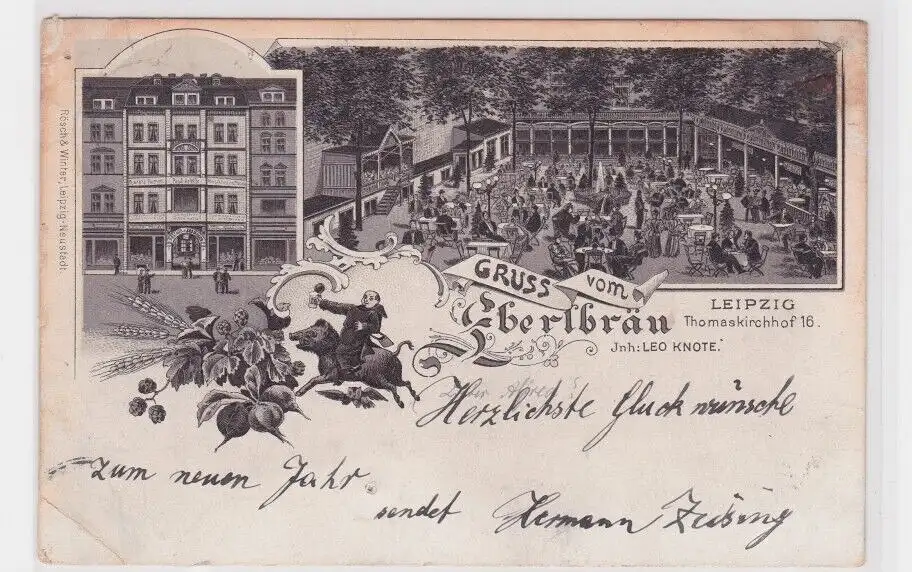 Rösch & Winter, Leipzig-Neustadt.
GRUSS vom
Eberlbräu
LEIPZIG
Thomaskirchhof 16.
Jnh: LEO KNOTE.
Herzlichste Glückwünsche
zum neuen Jahr
sendet Hermann Zeising